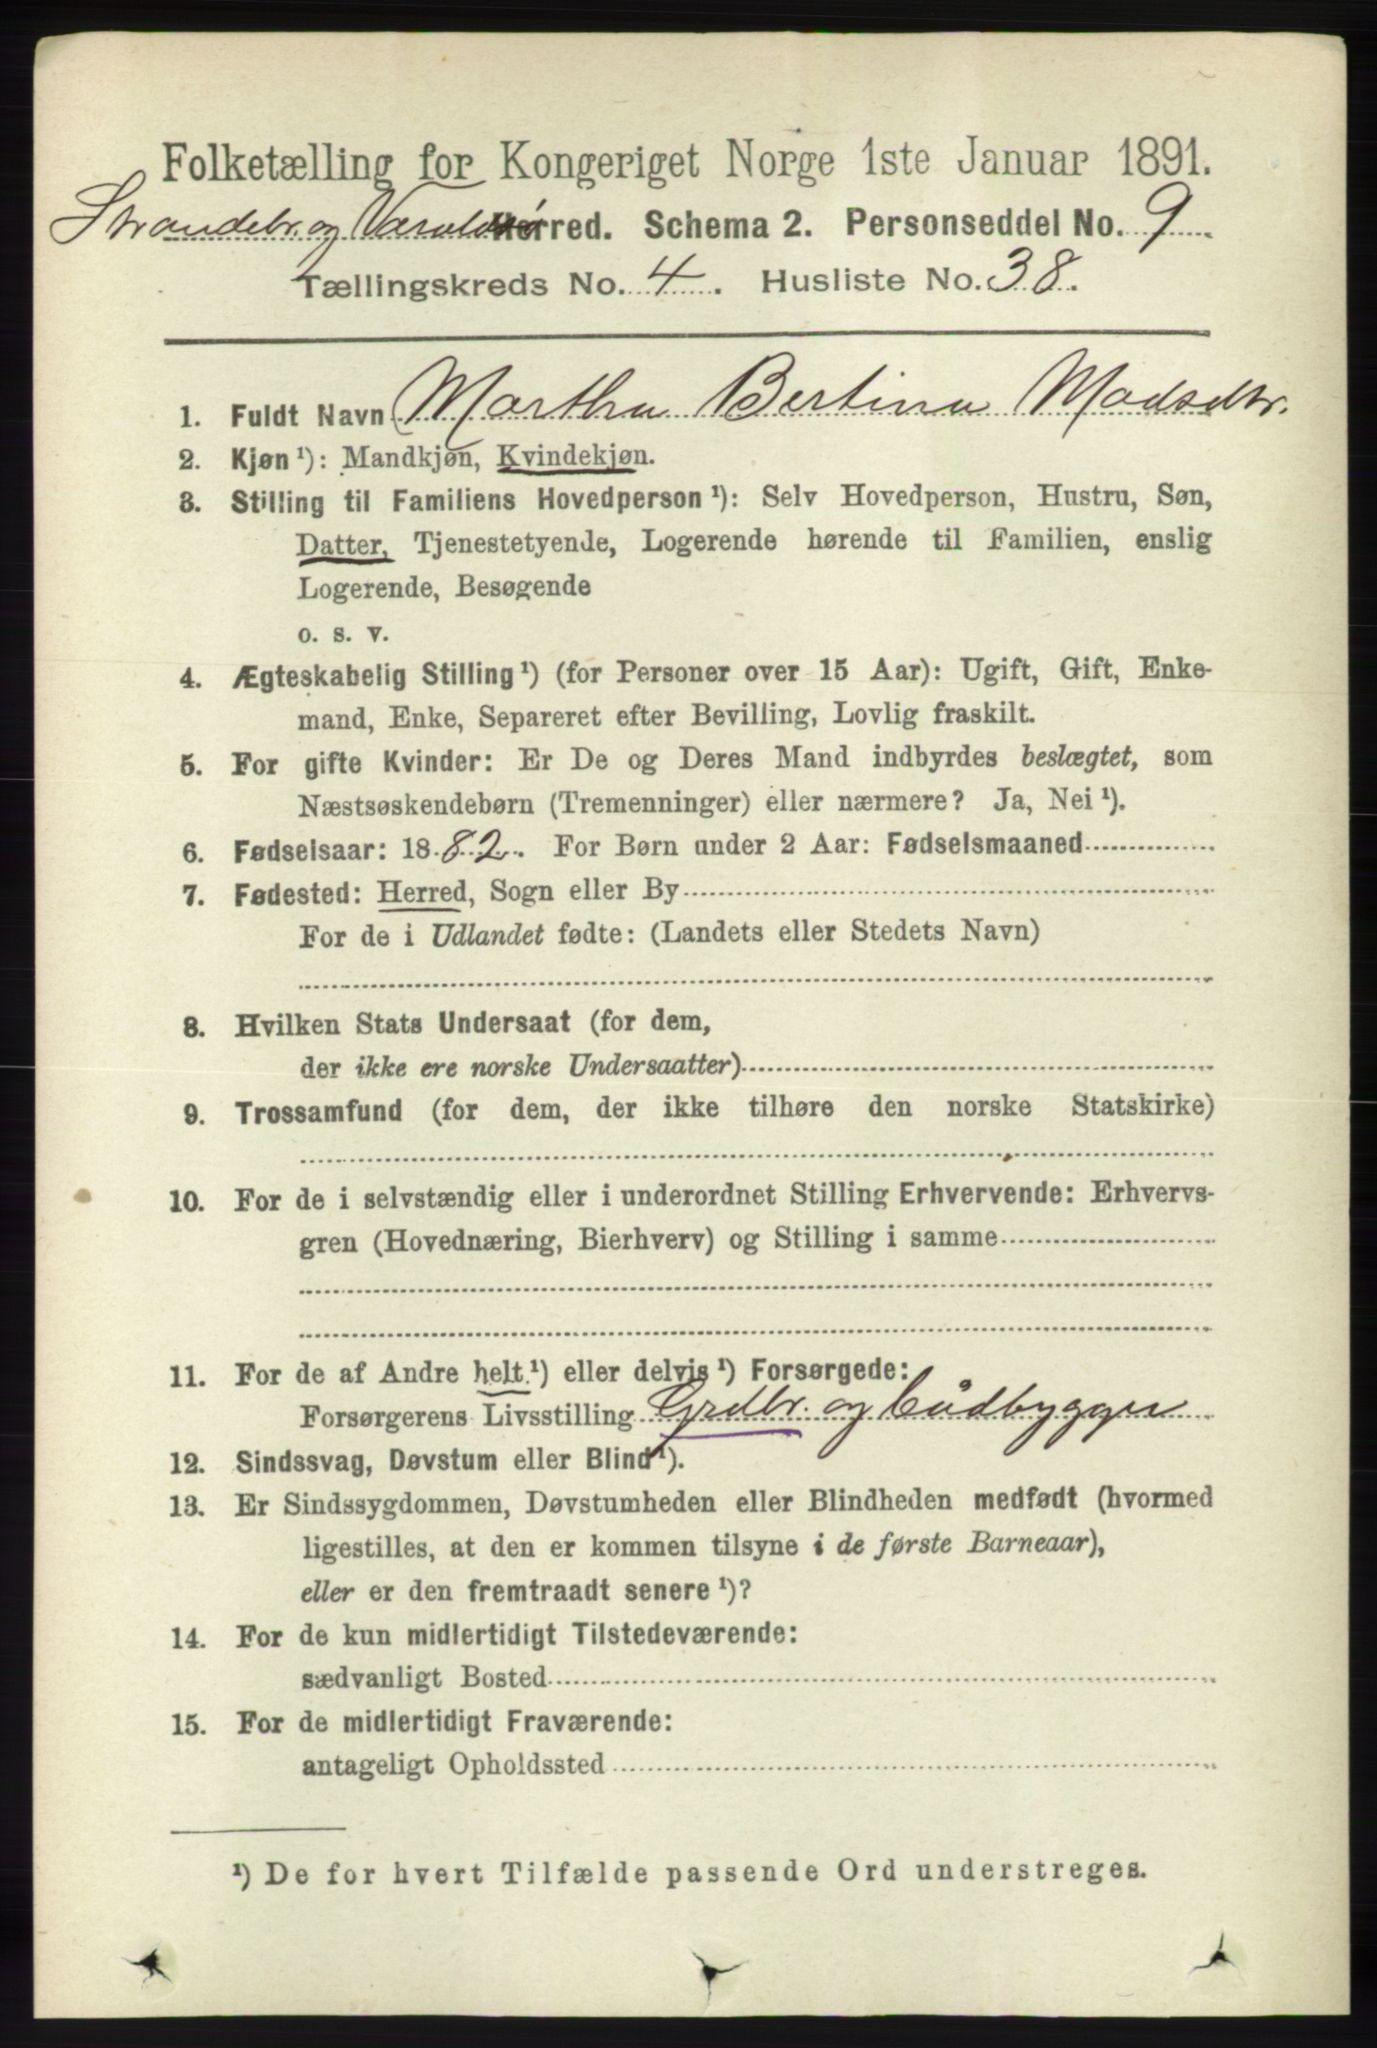 Folketælling for Kongeriget Norge 1ste Januar 1891.
Strandebr. og Varaldsø Herred. Schema 2. Personseddel No. 9
Tællingskreds No. 4. Husliste No. 38.
1. Fuldt Navn Martha Bertina Madsdtr.
2. Kjøn ¹): Mandkjøn, Kvindekjøn.
3. Stilling til Familiens Hovedperson ¹): Selv Hovedperson, Hustru, Søn,
Datter, Tjenestetyende, Logerende hørende til Familien, enslig
Logerende, Besøgende
o. s. v.
4. Ægteskabelig Stilling ¹) (for Personer over 15 Aar): Ugift, Gift, Enke-
mand, Enke, Separeret efter Bevilling, Lovlig fraskilt.
5. For gifte Kvinder: Er De og Deres Mand indbyrdes beslægtet, som
Næstsøskendebørn (Tremenninger) eller nærmere? Ja, Nei ¹).
6. Fødselsaar: 1882. For Børn under 2 Aar: Fødselsmaaned
7. Fødested: Herred, Sogn eller By
For de i Udlandet fødte: (Landets eller Stedets Navn)
8. Hvilken Stats Undersaat (for dem,
der ikke ere norske Undersaatter)
9. Trossamfund (for dem, der ikke tilhøre den norske Statskirke)
10. For de i selvstændig eller i underordnet Stilling Erhvervende: Erhvervs-
gren (Hovednæring, Bierhverv) og Stilling i samme
11. For de af Andre helt ¹) eller delvis ¹) Forsørgede:
Forsørgerens Livsstilling Grdbr. og Bådbygger
12. Sindssvag, Døvstum eller Blind ¹).
13. Er Sindssygdommen, Døvstumheden eller Blindheden medfødt (hvormed
ligestilles, at den er kommen tilsyne i de første Barneaar),
eller er den fremtraadt senere ¹)?
14. For de kun midlertidigt Tilstedeværende:
sædvanligt Bosted
15. For de midlertidigt Fraværende:
antageligt Opholdssted
¹) De for hvert Tilfælde passende Ord understreges.